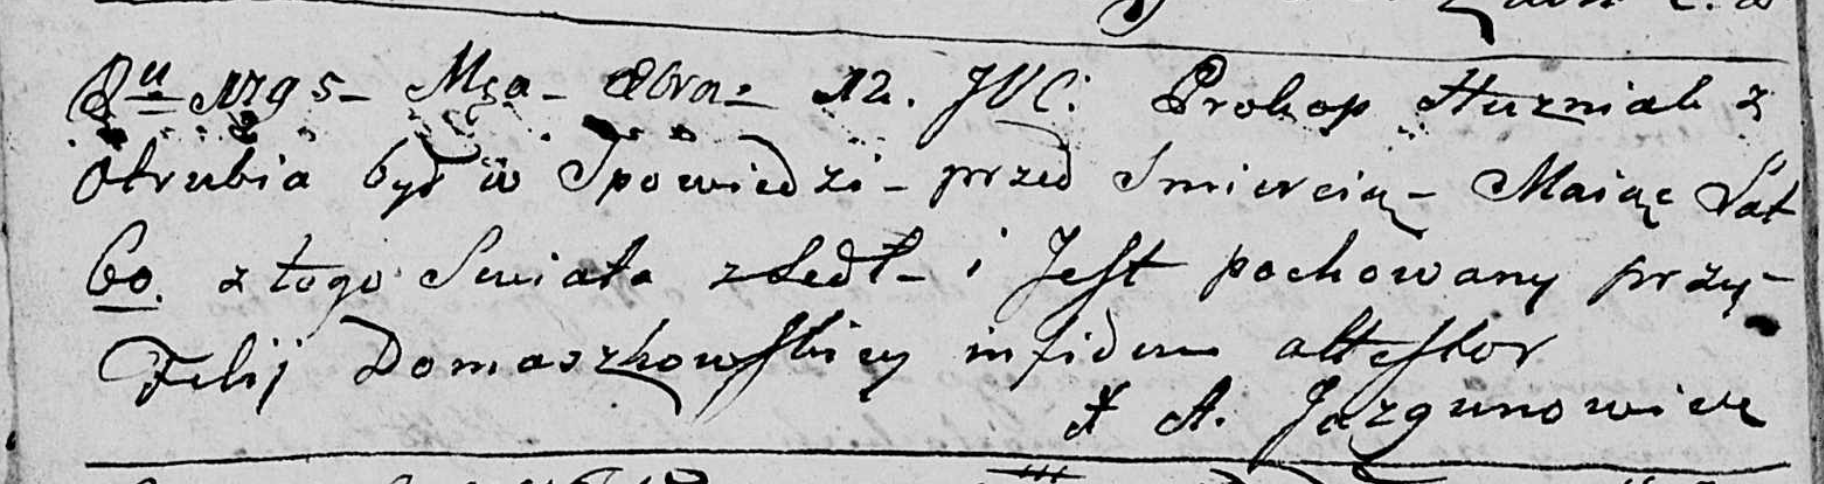 Ru 1795 – Mca – 8bra: 12. JVC. Prokop Huzniak z
Otrubia był w Spowiedzi – przed Smiercią – Maiąc Lat
60. z tego Swiata zszedł – i Jest pochowany przy –
Felij Domaszkowskiey in fidem attestor
X A. Jazgunowicz